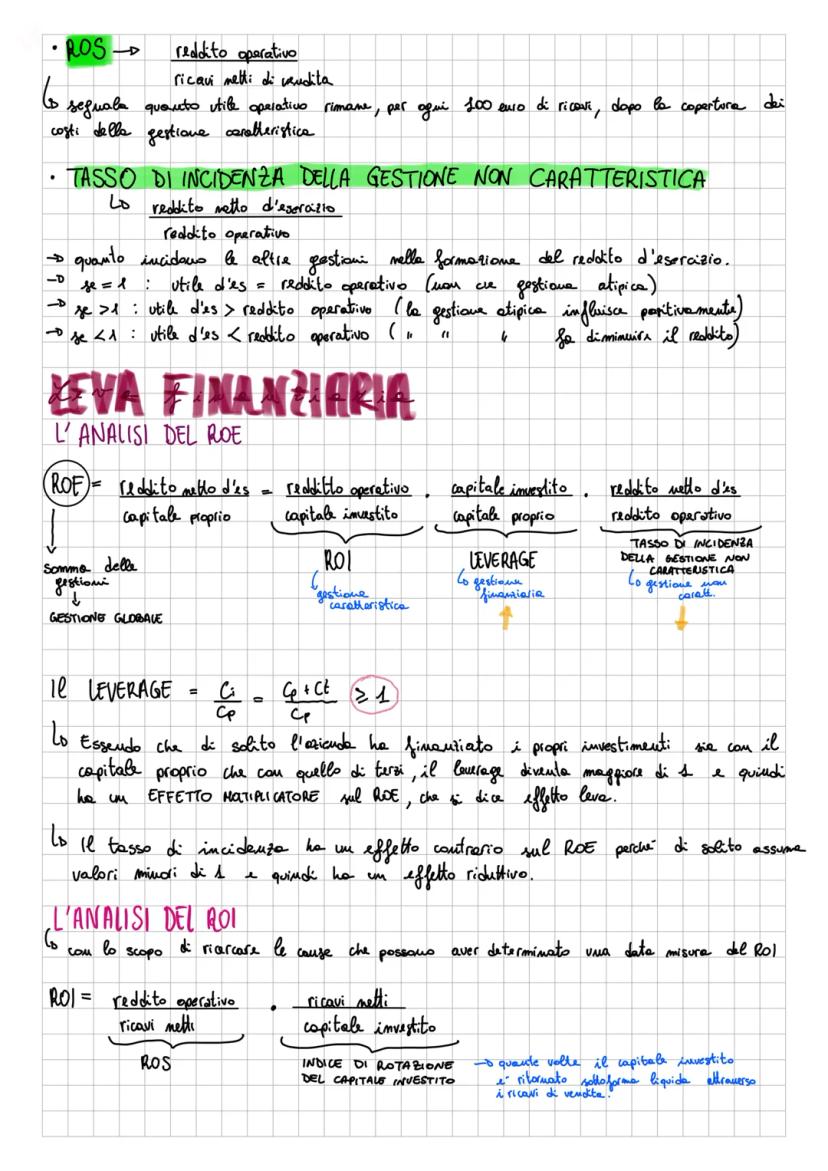 • ROS → reddito operativo
ricavi netti di vendita
↳ segnala quanto utile operativo rimane, per ogni 100 euro di ricavi, dopo la copertura dei
costi della gestione caratteristica
• TASSO DI INCIDENZA DELLA GESTIONE NON CARATTERISTICA
↳ reddito netto d'esercizio
reddito operativo
→ quanto incidono le altre gestioni nella formazione del reddito d'esercizio.
→ se = 1 : utile d'es = reddito operativo (non c'è gestione atipica)
→ se >1 : utile d'es > reddito operativo (la gestione atipica influisce positivamente)
→ se <1 : utile d'es < reddito operativo ( " " " fa diminuire il reddito)
LEVA FINANZIARIA
L'ANALISI DEL ROE
ROE = reddito netto d'es = redditto operativo . capitale investito . reddito netto d'es
capitale proprio capitale investito capitale proprio reddito operativo
ROI LEVERAGE TASSO DI INCIDENZA
DELLA GESTIONE NON
CARATTERISTICA
somma delle
gestioni
↓
GESTIONE GLOBALE
↳ gestione
caratteristica
↳ gestione
finanziaria
↳ gestione non
caratt.
Il LEVERAGE = Ci = Cp + Ct ≥ 1
Cp Cp
↳ Essendo che di solito l'azienda ha finanziato i propri investimenti sia con il
capitale proprio che con quello di terzi, il leverage diventa maggiore di 1 e quindi
ha un EFFETTO MOLTIPLICATORE sul ROE, che si dice effetto leva.
↳ Il tasso di incidenza ha un effetto contrario sul ROE perché di solito assume
valori minori di 1 e quindi ha un effetto riduttivo.
L'ANALISI DEL ROI
↳ con lo scopo di ricercare le cause che possono aver determinato una data misura del ROI
ROI = reddito operativo . ricavi netti
ricavi netti capitale investito
ROS INDICE DI ROTAZIONE
DEL CAPITALE INVESTITO
→ quante volte il capitale investito
e' ritornato sottoforma liquida attraverso
i ricavi di vendita.